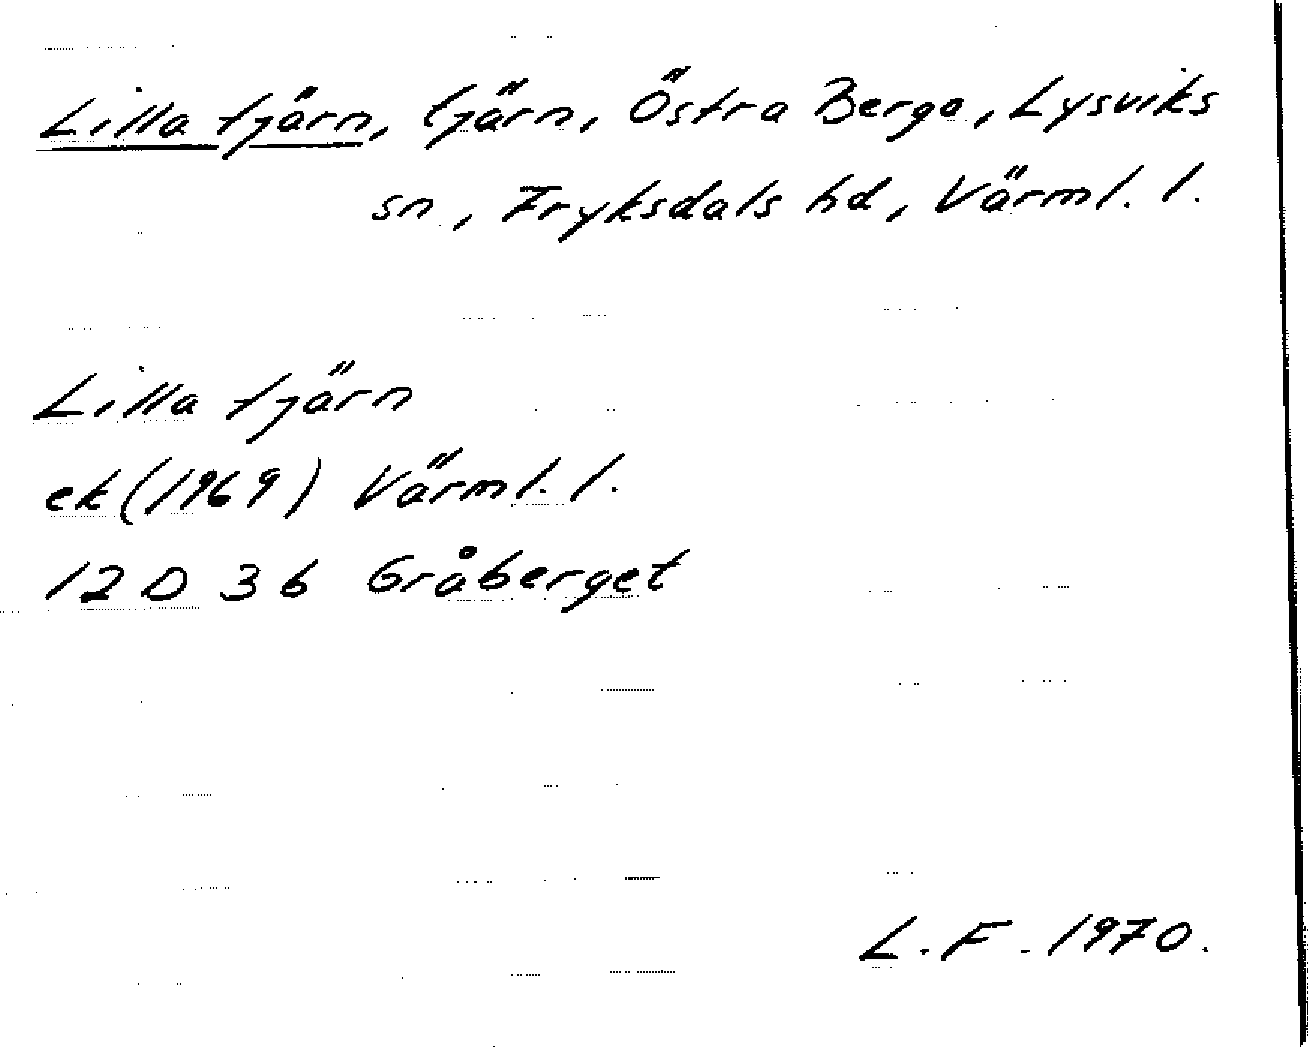 Lilla tjärn, tjärn, Östra Berga, Lysviks
sn, Fryksdals hd, Värml. l.
Lilla tjärn
ek (1969) Värml. l.
12 D 3 b Gråberget
L. F. 1970.